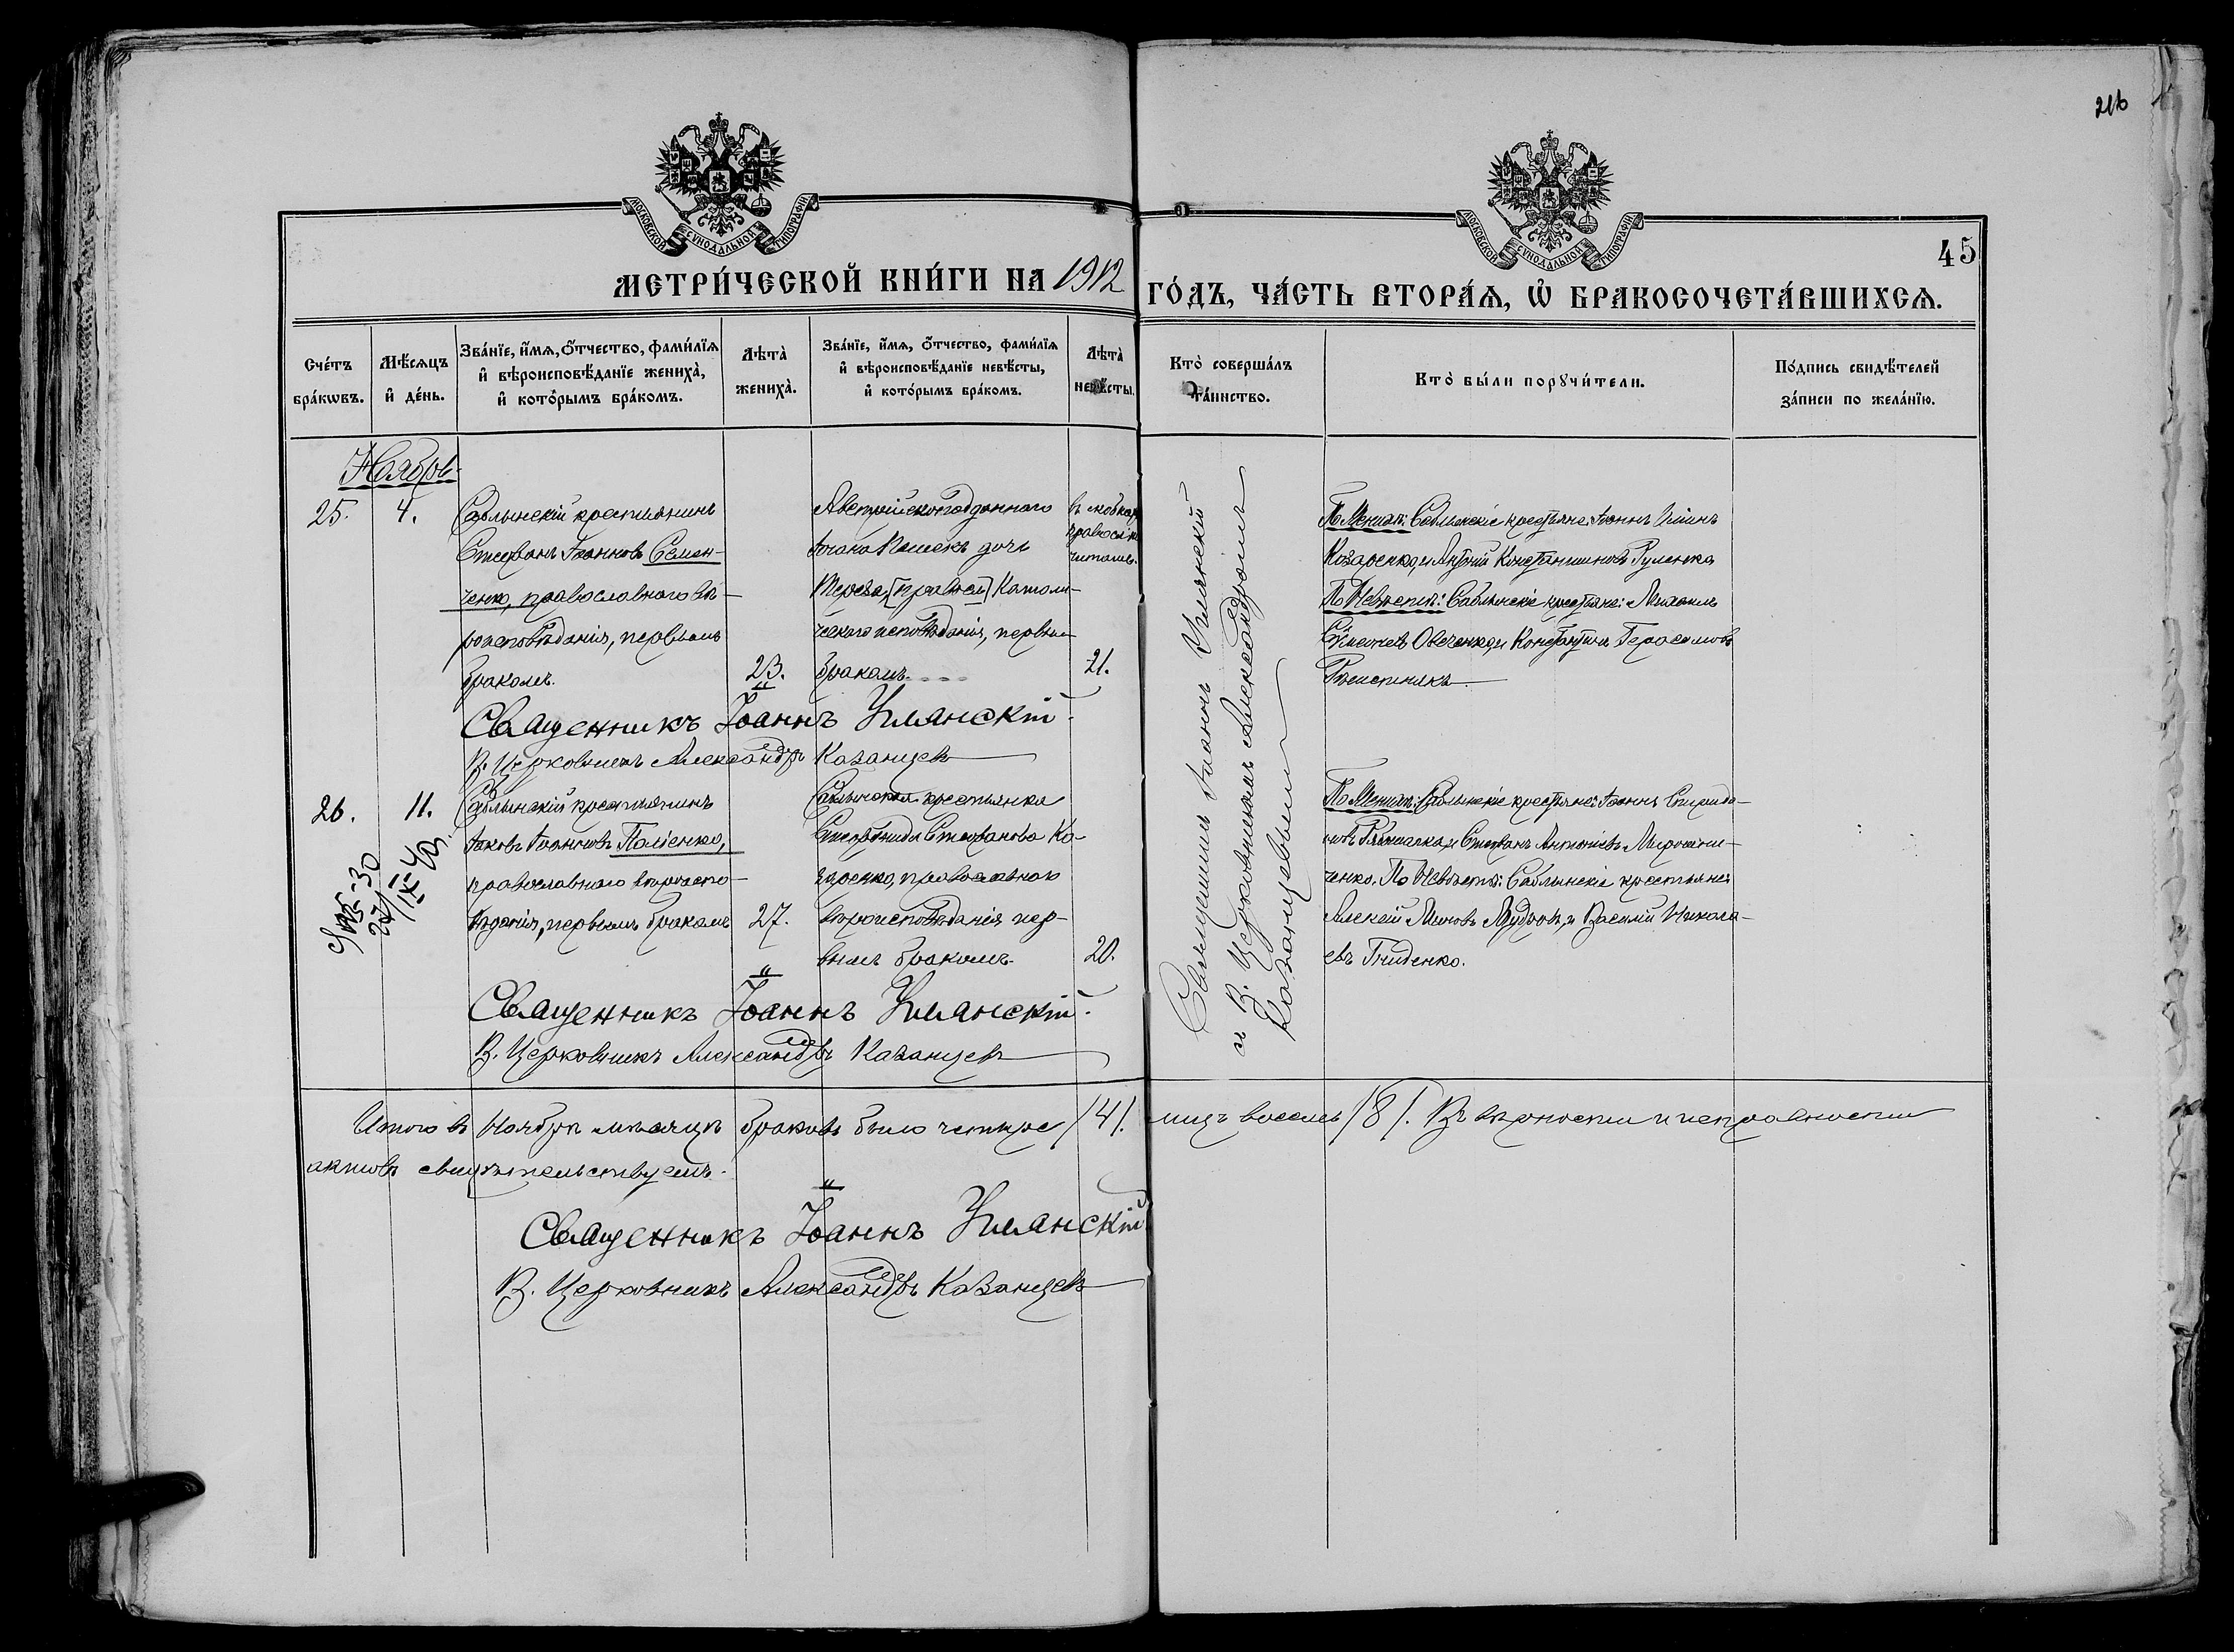 216
МОСКОВСКОЙ СѴНОДАЛЬНОЙ ТИПОГРАФІИ
МОСКОВСКОЙ СѴНОДАЛЬНОЙ ТИПОГРАФІИ
45
МЕТРИ́ЧЕСКОЙ КНИ́ГИ НА 1912 ГО́ДЪ, ЧА́СТЬ ВТОРА́Ѧ, Ѡ҆ БРАКОСОЧЕТА́ВШИХСѦ.
Сче́тъ
бра́кѡвъ.
Мѣ́сѧцъ
и҆ де́нь.
Зва́нїе, и҆́мѧ, ѻ҆́тчество, фами́лїѧ
и҆ вѣроисповѣ́данїе жениха̀,
и҆ кото́рымъ бра́комъ.
Лѣта̀
жениха̀.
Зва́нїе, и҆́мѧ, ѻ҆́тчество, фами́лїѧ
и҆ вѣроисповѣ́данїе невѣ́сты,
и҆ кото́рымъ бра́комъ.
Лѣта̀
невѣ́сты.
Кто̀ соверша́лъ
та́инство.
Кто̀ бы́ли порꙋчи́тели.
По́дпись свидѣ́телей
за́писи по жела́нїю.
Ноябрь
25.
4.
Саблынскій крестьянинъ
Стефанъ Іоанновъ Семен-
ченко, православнаго вѣ-
роисповѣданія, первымъ
бракомъ.
23.
Австрійскоподданнаго
дочь
Тереза, [правосл] Католи-
ческаго исповѣданія, первы
бракомъ.
21.
По Женихѣ: Саблынскіе крестьяне: Іоаннъ
Козаренко, и Константиновъ Руленко
По Невѣстѣ: Саблынскіе крестьяне: Михаилъ
Овеченко, и Константинъ Герасимовъ
Священникъ Іоаннъ Уманскій
и В. Церковникомъ Александромъ
Казанцевымъ
Священникъ Іоаннъ Уманскій.
В. Церковникъ Александръ Казанцевъ
26.
11.
Саблынскій крестьянинъ
Іаковъ Іоанновъ Паліенко,
православнаго вѣроиспо-
вѣданія, первымъ бракомъ
27.
Саблынская крестьянка
Стефанида Стефанова Ко-
заренко, православнаго
вѣроисповѣданія пер-
вымъ бракомъ.
20.
По Женихѣ: Саблынскіе крестьяне: Іоаннъ Спиридо-
новъ и Стефанъ Антоніевъ Мирошни-
ченко. По Невѣстѣ: Саблынскіе крестьяне:
Алексій и Василій Никола-
евъ Гниденко.
Священникъ Іоаннъ Уманскій.
В. Церковникъ Александръ Казанцевъ
Итого въ Ноябрѣ мѣсяцѣ браковъ было четыре /4/. лицъ восемь /8/. Въ вѣрности и исправности
актовъ свидѣтельствуемъ.
Священникъ Іоаннъ Уманскій
В. Церковникъ Александръ Казанцевъ